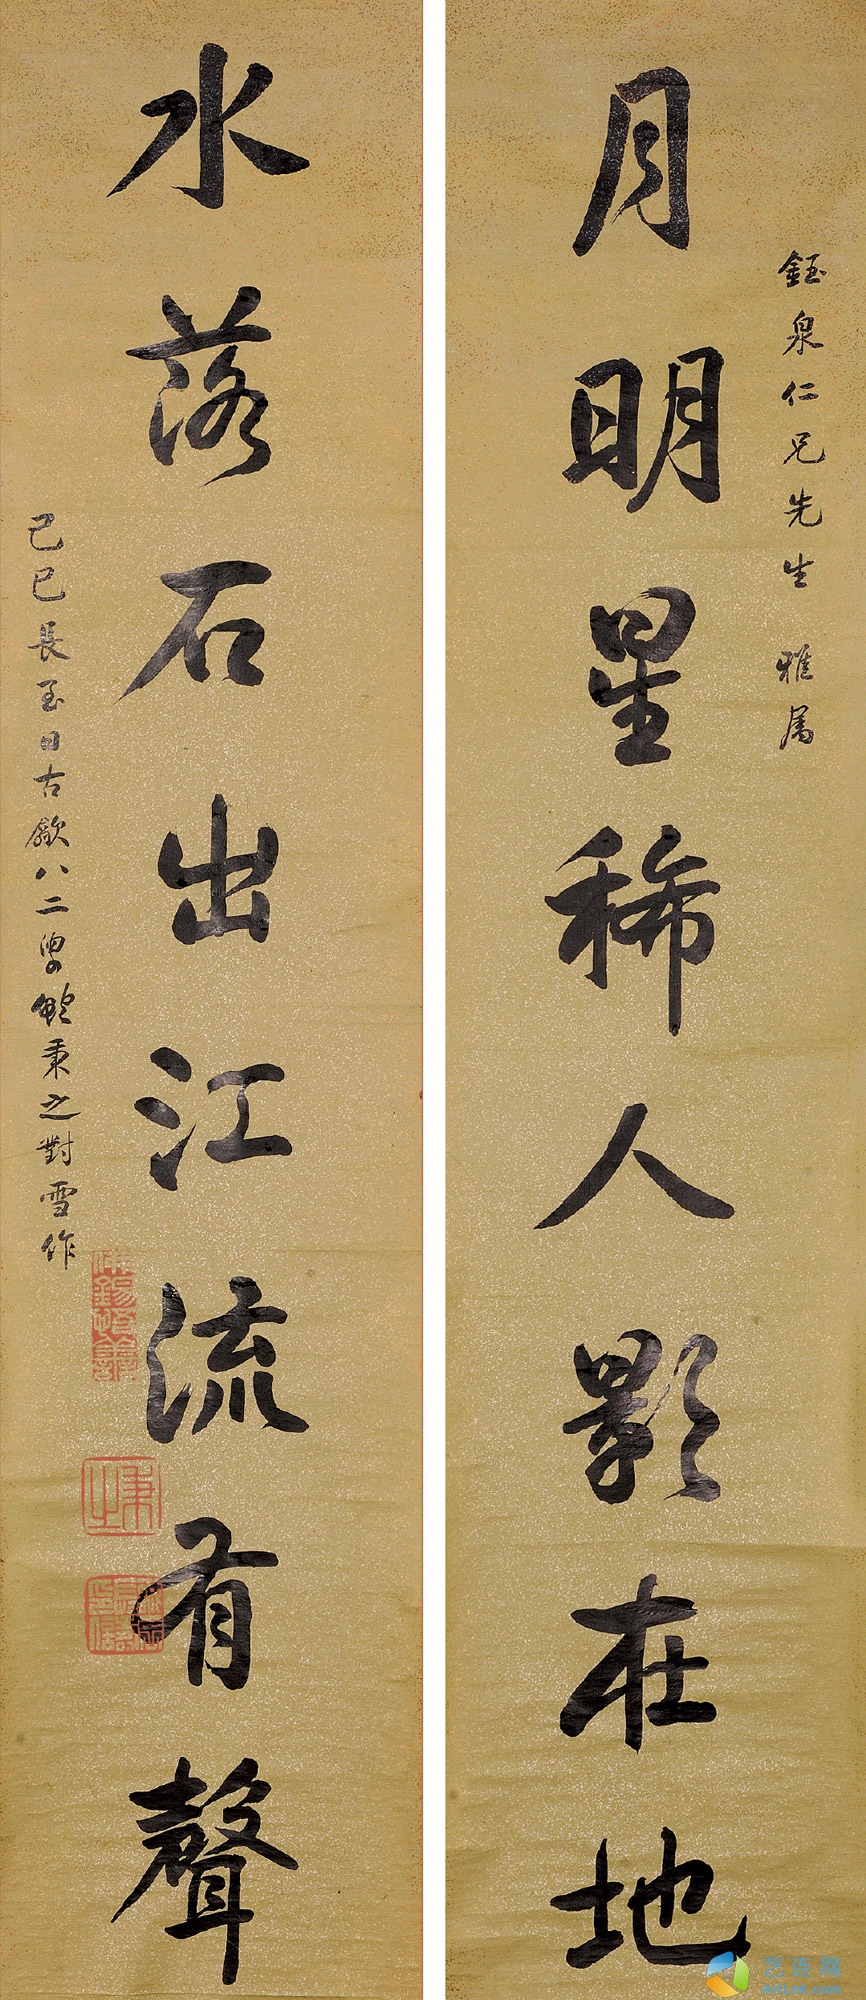 鈺泉仁兄先生 雅屬
月明星稀人影在地
水落石出江流有聲
己巳長至日古歙八二叟鮑秉之對雪作
秉之
艺连网
ArtLnk.com